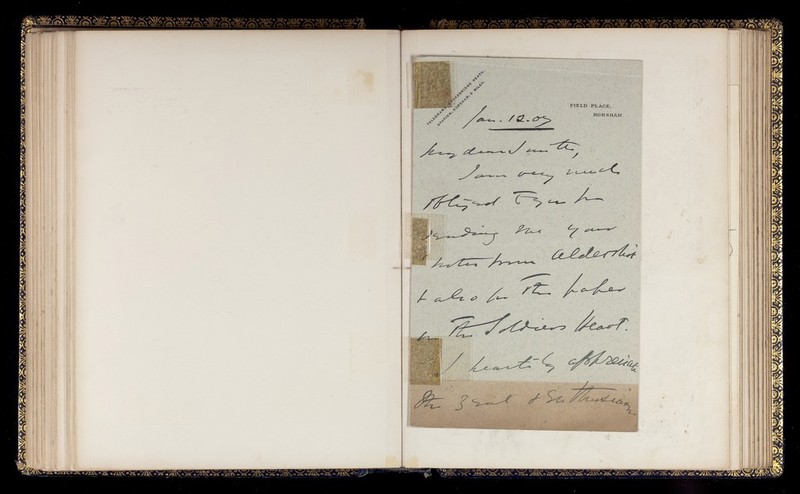 TELEGRAMS,
STATION, HORSHAM, 2 MILES.
FIELD PLACE,
HORSHAM.
Jan. 12. 07
My dear Smith,
I am very much
obliged to you for
sending me your
notes from Aldershot
& also for the paper
on the Soldiers Heart.
I heartily appreciate
the zeal & enthusiasm